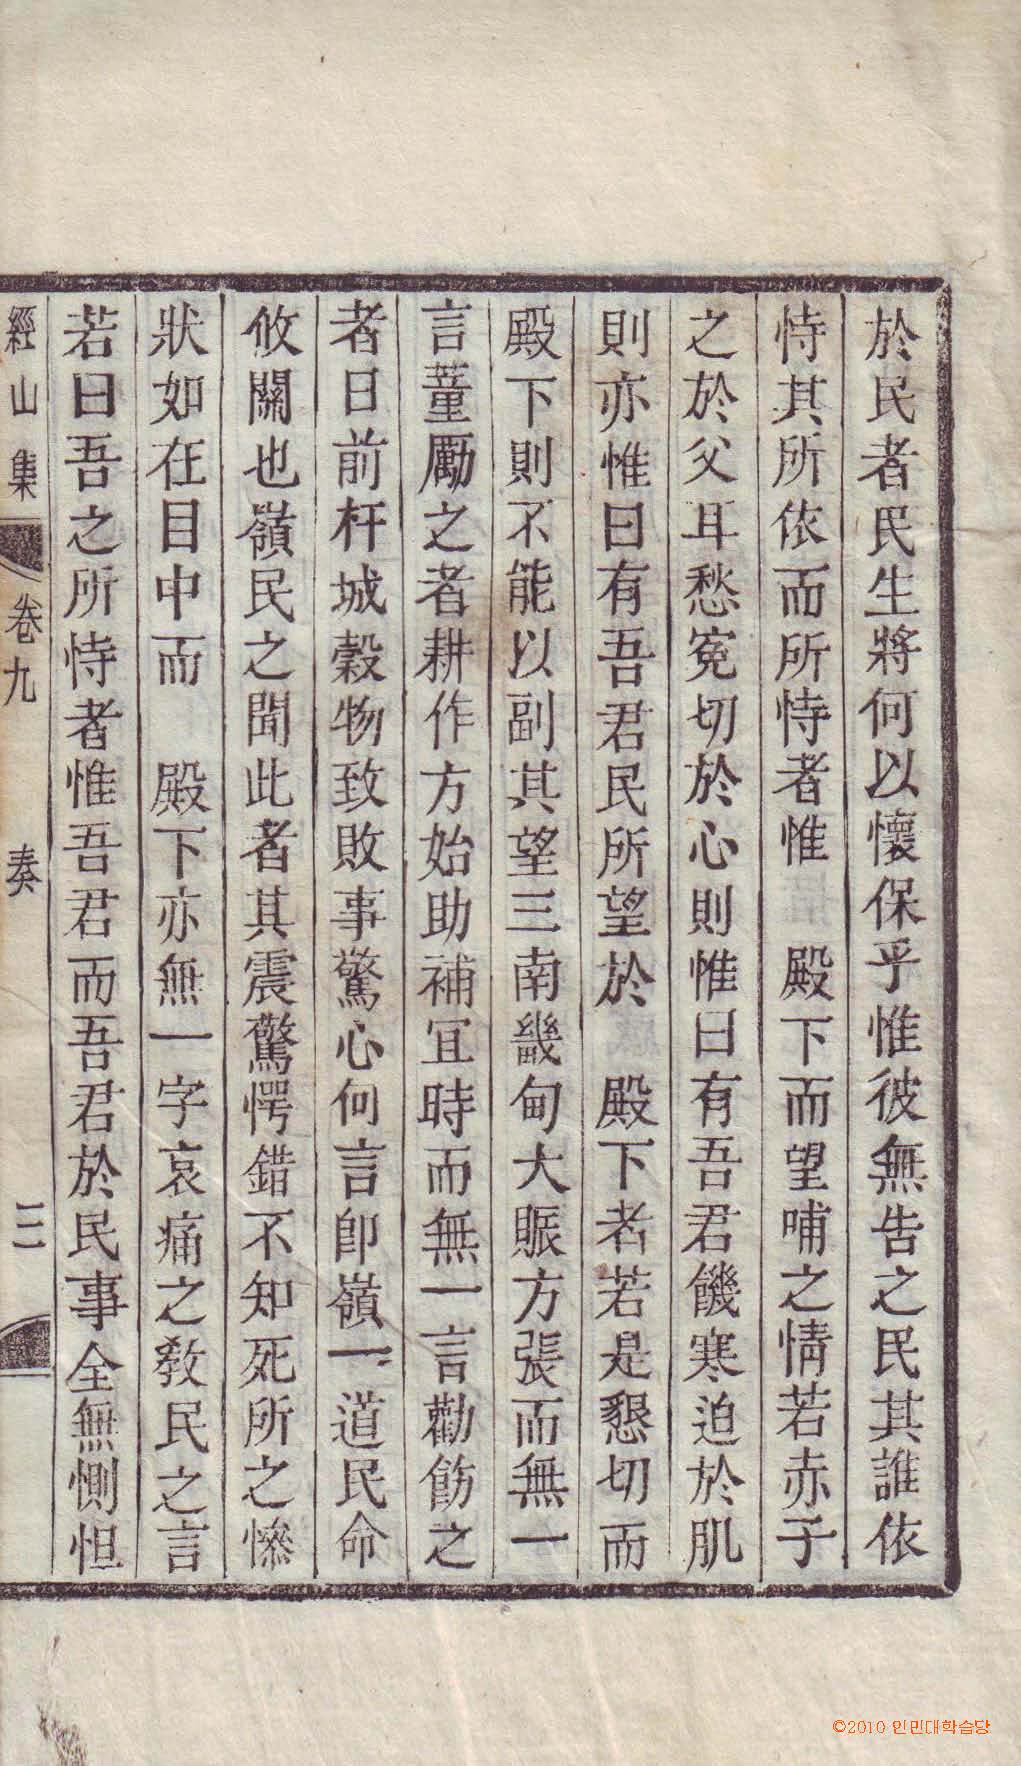 於民者民生將何以懷保乎惟彼無告之民其誰依
恃其所依而所恃者惟　殿下而望哺之情若赤子
之於父耳愁寃切於心則惟曰有吾君饑寒迫於肌
則亦惟曰有吾君民所望於　殿下者若是懇切而
殿下則不能以副其望三南畿甸大賑方張而無一
言董勵之者耕作方始助補宜時而無一言勸飭之
者日前杆城穀物致敗事驚心何言卽嶺一道民命
攸關也嶺民之聞此者其震驚愕錯不知死所之慘
狀如在目中而　殿下亦無一字哀痛之敎民之言
若曰吾之所恃者惟吾君而吾君於民事全無惻怛
經山集　卷九　奏　二
©2010 인민대학습당